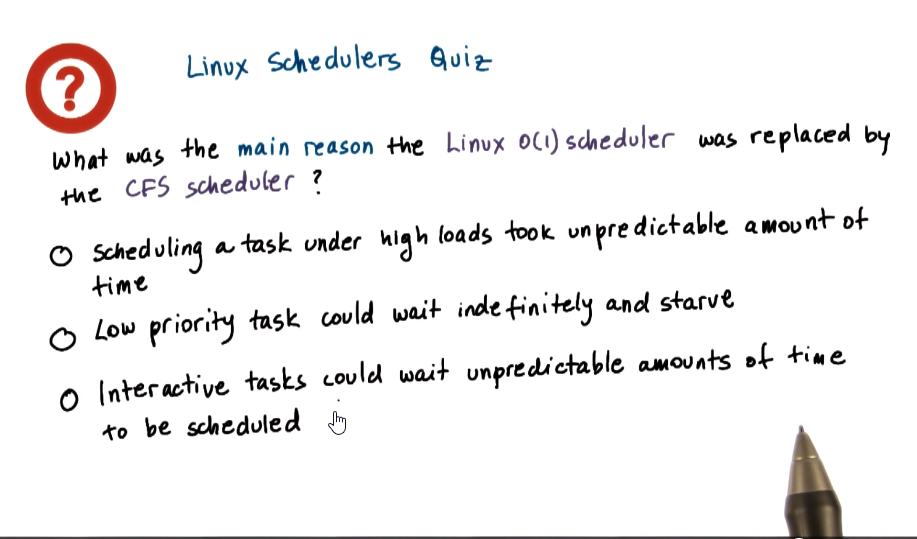 ?
Linux Schedulers Quiz
What was the main reason the Linux O(1) scheduler was replaced by
the CFS scheduler ?
Scheduling a task under high loads took unpredictable amount of
time
Low priority task could wait indefinitely and starve
Interactive tasks could wait unpredictable amounts of time
to be scheduled